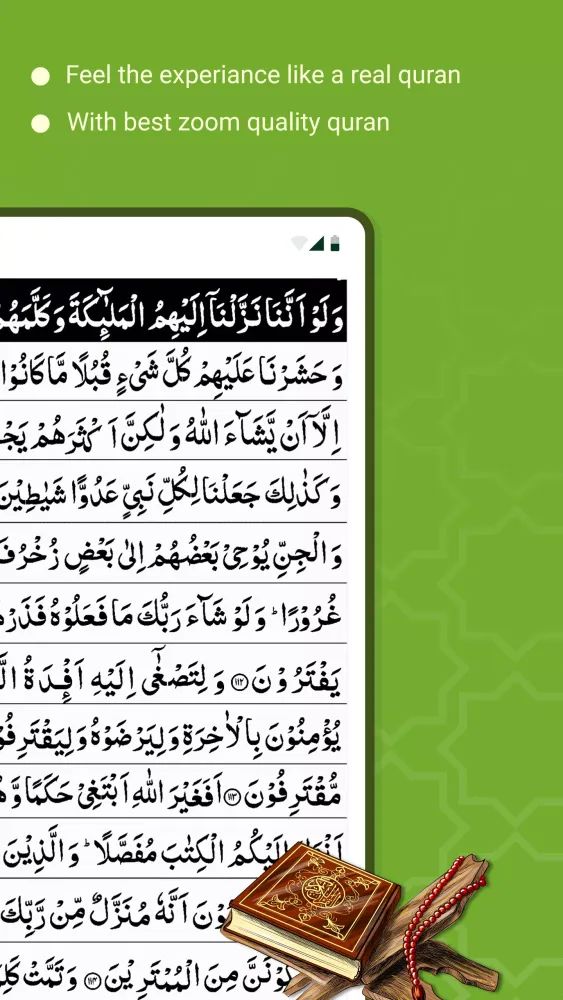 Feel the experiance like a real quran
With best zoom quality quran
وَلَوْ اَنَّنَا نَزَّلْنَاۤ اِلَيْهِمُ الْمَلٰٓئِكَةَ وَكَلَّمَهُمُ
وَحَشَرْنَا عَلَيْهِمْ كُلَّ شَيْءٍ قُبُلًا مَّا كَانُوْا
اِلَّاۤ اَنْ يَّشَآءَ اللّٰهُ وَلٰكِنَّ اَكْثَرَهُمْ يَجْ
وَكَذٰلِكَ جَعَلْنَا لِكُلِّ نَبِيٍّ عَدُوًّا شَيٰطِيْنَ
وَالْجِنِّ يُوْحِيْ بَعْضُهُمْ اِلٰى بَعْضٍ زُخْرُفَ
غُرُوْرًا ؕ وَلَوْ شَآءَ رَبُّكَ مَا فَعَلُوْهُ فَذَرْهُ
يَفْتَرُوْنَ ﴿۱۱۲﴾ وَلِتَصْغٰۤى اِلَيْهِ اَفْـِٕدَةُ الَّ
يُؤْمِنُوْنَ بِالْاٰخِرَةِ وَلِيَرْضَوْهُ وَلِيَقْتَرِفُوْ
مُّقْتَرِفُوْنَ ﴿۱۱۳﴾ اَفَغَيْرَ اللّٰهِ اَبْتَغِيْ حَكَمًا وَّهُ
اِلَيْكُمُ الْكِتٰبَ مُفَصَّلًا ؕ وَالَّذِيْنَ
وْنَ اَنَّهٗ مُنَزَّلٌ مِّنْ رَّبِّكَ
وْنَنَّ مِنَ الْمُمْتَرِيْنَ ﴿۱۱۴﴾ وَتَمَّتْ كَلِ